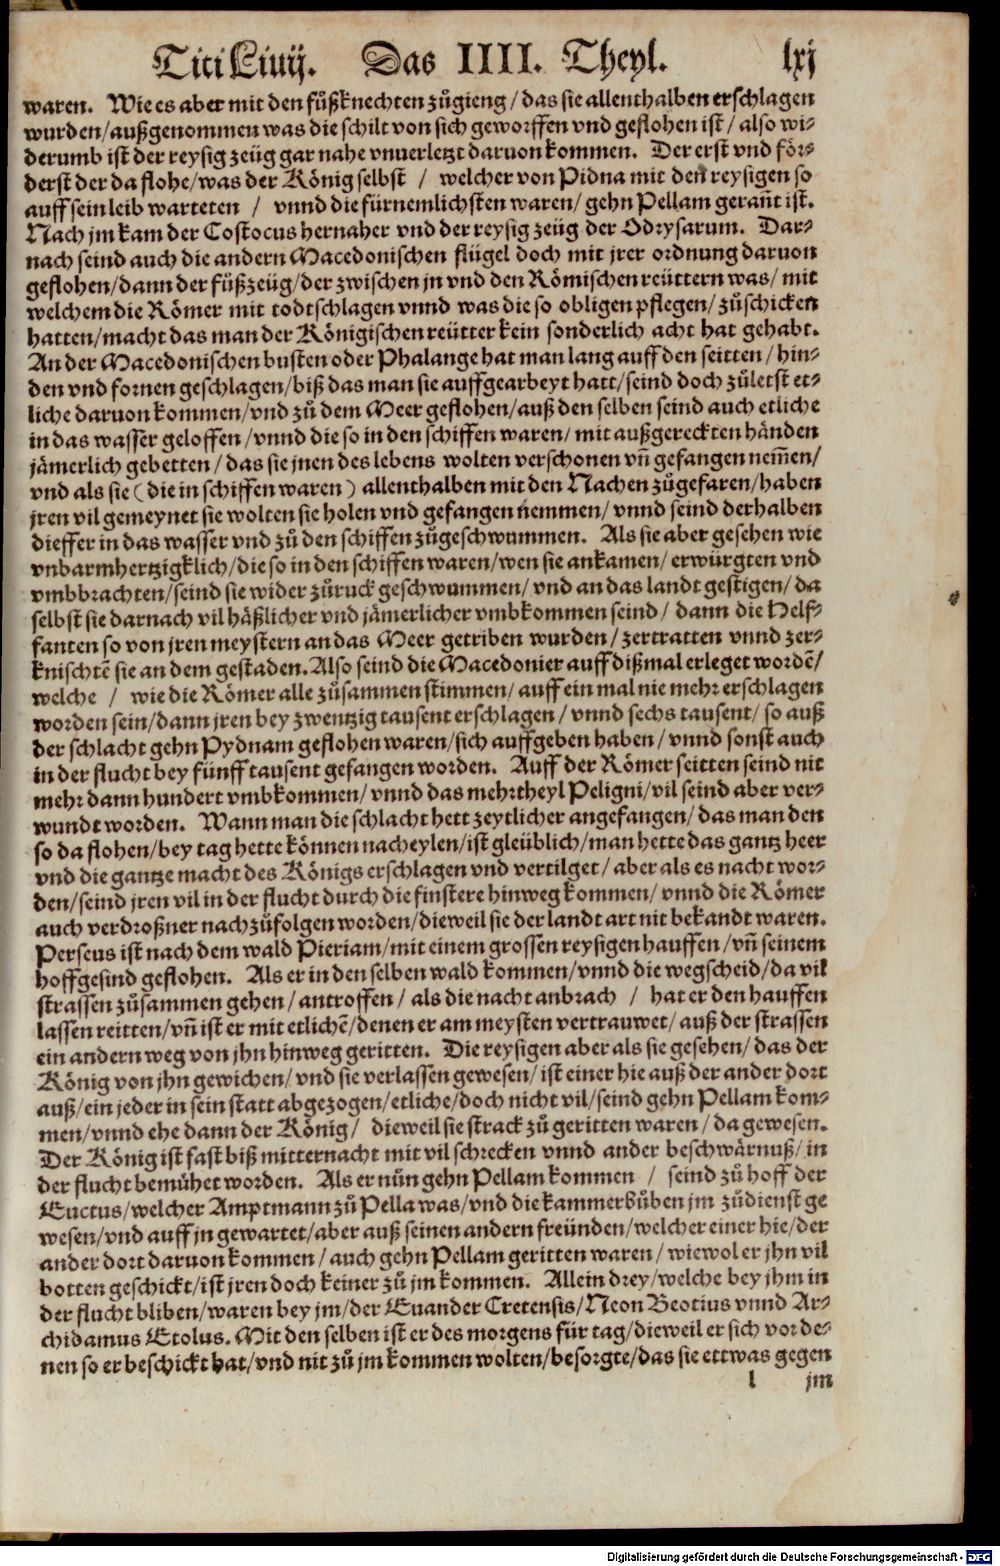 Titi Liuij. Das IIII. Theyl. lxj
waren. Wie es aber mit den fůßknechten zůgieng / das sie allenthalben erschlagen
wurden / außgenommen was die schilt von sich geworffen vnd geflohen ist / also wi-
derumb ist der reysig zeüg gar nahe vnuerletzt daruon kommen. Der erst vnd för-
derst der da flohe / was der König selbst / welcher von Pidna mit den reysigen so
auff sein leib warteten / vnnd die fürnemlichsten waren / gehn Pellam gerañt ist.
Nach jm kam der Costocus hernaher vnd der reysig zeüg der Odrysarum. Dar-
nach seind auch die andern Macedonischen flügel doch mit jrer ordnung daruon
geflohen / dann der fůßzeüg / der zwischen jn vnd den Römischen reüttern was / mit
welchem die Römer mit todtschlagen vnnd was die so obligen pflegen / zůschicken
hatten / macht das man der Königischen reütter kein sonderlich acht hat gehabt.
An der Macedonischen busten oder Phalange hat man lang auff den seitten / hin-
den vnd fornen geschlagen / biß das man sie auffgearbeyt hatt / seind doch zůletst et-
liche daruon kommen / vnd zů dem Meer geflohen / auß den selben seind auch etliche
in das wasser geloffen / vnnd die so in den schiffen waren / mit außgereckten händen
jämerlich gebetten / das sie jnen des lebens wolten verschonen vñ gefangen nem̃en /
vnd als sie ( die in schiffen waren ) allenthalben mit den Nachen zůgefaren / haben
jren vil gemeynet sie wolten sie holen vnd gefangen nemmen / vnnd seind derhalben
dieffer in das wasser vnd zů den schiffen zůgeschwummen. Als sie aber gesehen wie
vnbarmhertzigklich / die so in den schiffen waren / wen sie ankamen / erwürgten vnd
vmbbrachten / seind sie wider zůruck geschwummen / vnd an das landt gestigen / da
selbst sie darnach vil häßlicher vnd jämerlicher vmbkommen seind / dann die Helf-
fanten so von jren meystern an das Meer getriben wurden / zertratten vnnd zer-
knischtē sie an dem gestaden. Also seind die Macedonier auff dißmal erleget wordē /
welche / wie die Römer alle zůsammen stimmen / auff ein mal nie mehr erschlagen
worden sein / dann jren bey zwentzig tausent erschlagen / vnnd sechs tausent / so auß
der schlacht gehn Pydnam geflohen waren / sich auffgeben haben / vnnd sonst auch
in der flucht bey fünff tausent gefangen worden. Auff der Römer seitten seind nit
mehr dann hundert vmbkommen / vnnd das mehrtheyl Peligni / vil seind aber ver-
wundt worden. Wann man die schlacht hett zeytlicher angefangen / das man den
so da flohen / bey tag hette können nacheylen / ist gleüblich / man hette das gantz heer
vnd die gantze macht des Königs erschlagen vnd vertilget / aber als es nacht wor-
den / seind jren vil in der flucht durch die finstere hinweg kommen / vnnd die Römer
auch verdroßner nachzůfolgen worden / dieweil sie der landt art nit bekandt waren.
Perseus ist nach dem wald Pieriam / mit einem grossen reysigen hauffen / vñ seinem
hoffgesind geflohen. Als er in den selben wald kommen / vnnd die wegscheid / da vil
strassen zůsammen gehen / antroffen / als die nacht anbrach / hat er den hauffen
lassen reitten / vñ ist er mit etlichē / denen er am meysten vertrauwet / auß der strassen
ein andern weg von jhn hinweg geritten. Die reysigen aber als sie gesehen / das der
König von jhn gewichen / vnd sie verlassen gewesen / ist einer hie auß der ander dort
auß / ein jeder in sein statt abgezogen / etliche / doch nicht vil / seind gehn Pellam kom-
men / vnnd ehe dann der König / dieweil sie strack zů geritten waren / da gewesen.
Der König ist fast biß mitternacht mit vil schrecken vnnd ander beschwärnuß / in
der flucht bemühet worden. Als er nůn gehn Pellam kommen / seind zů hoff der
Euctus / welcher Amptmann zů Pella was / vnd die kammerbůben jm zůdienst ge
wesen / vnd auff jn gewartet / aber auß seinen andern freünden / welcher einer hie / der
ander dort daruon kommen / auch gehn Pellam geritten waren / wiewol er jhn vil
botten geschickt / ist jren doch keiner zů jm kommen. Allein drey / welche bey jhm in
der flucht bliben / waren bey jm / der Euander Cretensis / Neon Beotius vnnd Ar-
chidamus Etolus. Mit den selben ist er des morgens für tag / dieweil er sich vor de-
nen so er beschickt hat / vnd nit zů jm kommen wolten / besorgte / das sie ettwas gegen
l jm
Digitalisierung gefördert durch die Deutsche Forschungsgemeinschaft - DFG